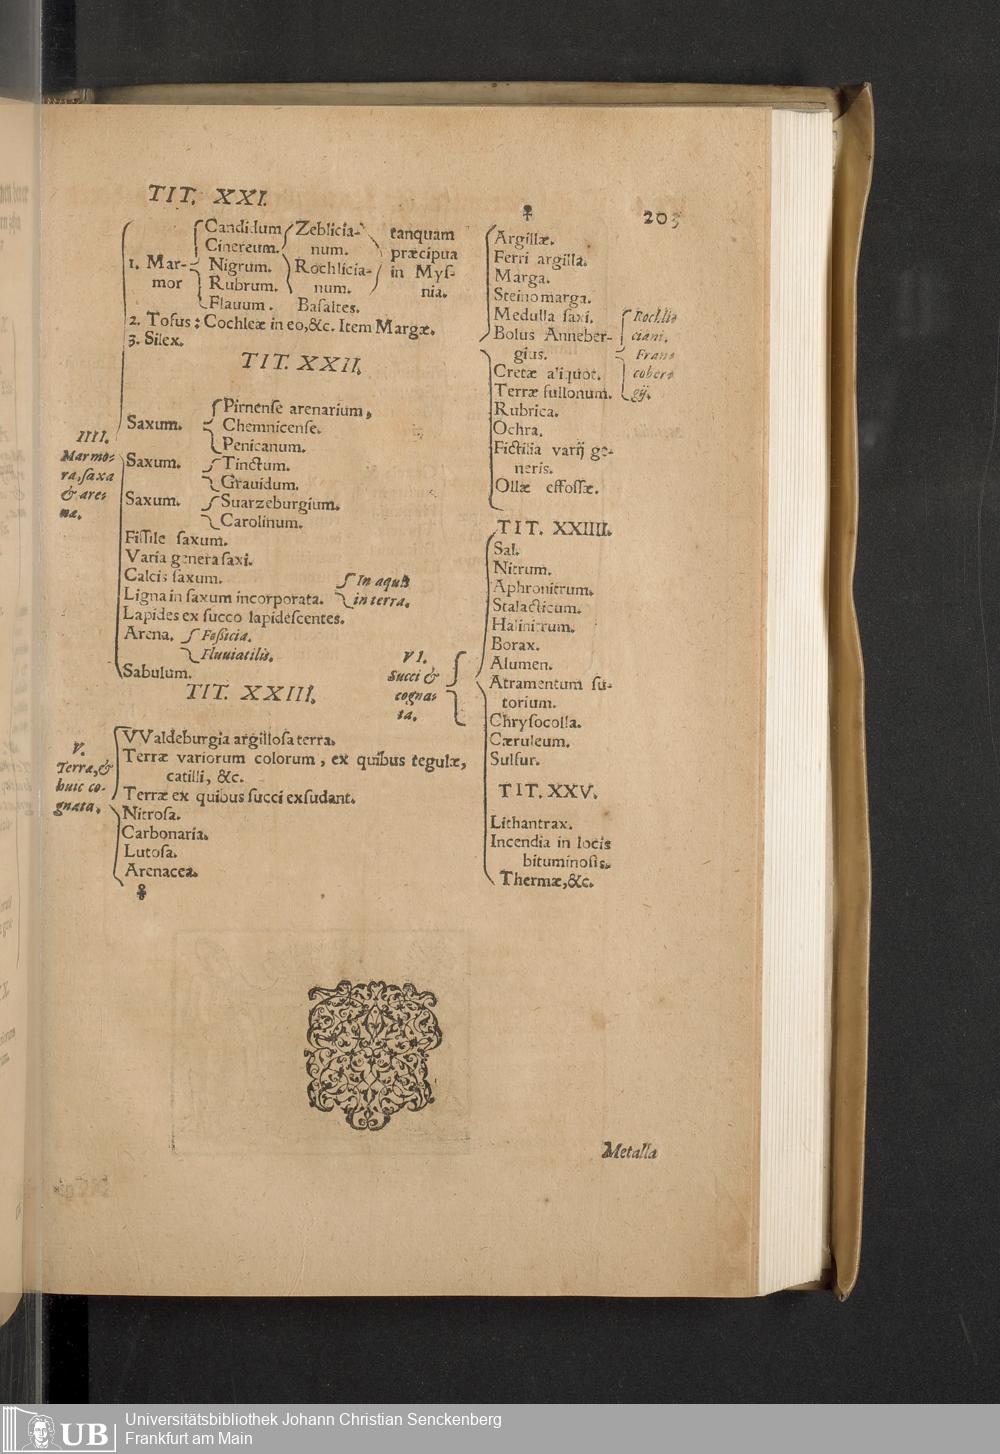 203
TIT. XXI.
1. Mar-
mor
Candidum
Cinereum.
Nigrum.
Rubrum.
Flauum.
Zeblicia-
num.
Rochlicia-
num.
Basaltes.
tanquam
præcipua
in Mys-
nia.
2. Tofus: Cochleæ in eo, &c. Item Margæ.
3. Silex.
TIT. XXII.
IIII.
Marmo-
ra, saxa
& are-
na.
Saxum.
Pirnense arenarium,
Chemnicense.
Penicanum.
Saxum.
Tinctum.
Grauidum.
Saxum.
Suarzeburgium.
Carolinum.
Fissile saxum.
Varia genera saxi.
Calcis saxum.
Ligna in saxum incorporata.
In aquis
in terra.
Lapides ex succo lapidescentes.
Arena.
Fossicia.
Fluuiatilis.
Sabulum.
TIT. XXIII.
V.
Terra, &
huic co-
gnata.
VValdeburgia argillosa terra.
Terræ variorum colorum, ex quibus tegulæ,
catilli, &c.
Terræ ex quibus succi exsudant.
Nitrosa.
Carbonaria.
Lutosa.
Arenacea.
Argillæ.
Ferri argilla.
Marga.
Steinomarga.
Medulla saxi.
Bolus Anneber-
gius.
Cretæ aliquot.
Terræ fullonum.
Rochli-
ciani.
Fran-
cober-
gij.
Rubrica.
Ochra.
Fictilia varij ge-
neris.
Ollæ effossæ.
TIT. XXIIII.
VI.
Succi &
cogna-
ta.
Sal.
Nitrum.
Aphronitrum.
Stalacticum.
Halinitrum.
Borax.
Alumen.
Atramentum su-
torium.
Chrysocolla.
Cæruleum.
Sulfur.
TIT. XXV.
Lithantrax.
Incendia in locis
bituminosis.
Thermæ, &c.
Metalla
UB
Universitätsbibliothek Johann Christian Senckenberg
Frankfurt am Main